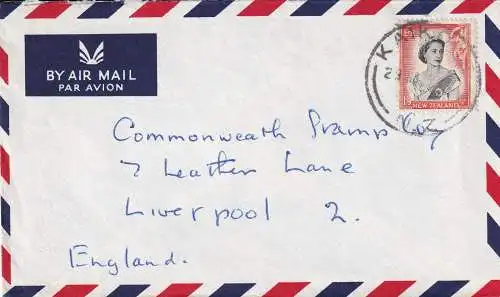 BY AIR MAIL
PAR AVION
NEW ZEALAND
Commonwealth Stamp Co
7 Leather Lane
Liverpool 2.
England.